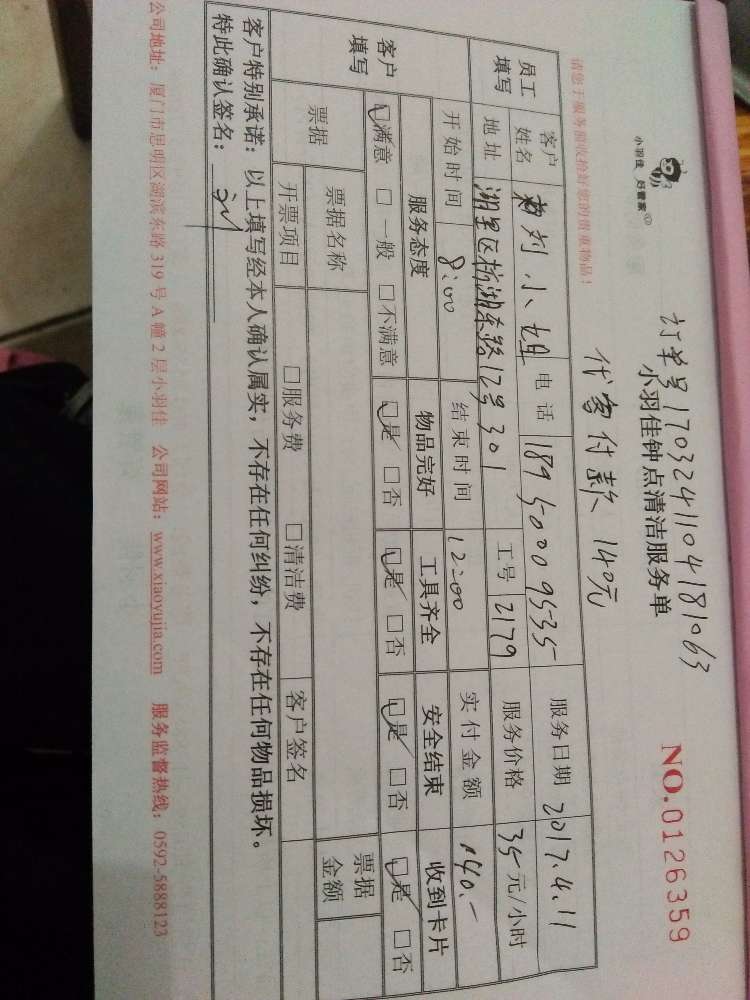 小羽佳 好管家
订单号170324110418 1063
小羽佳钟点清洁服务单
NO.0126359
代客付款 140元
请您于服务前收拾好您的贵重物品!
员工填写 客户姓名 刘小姐 电话 18950009535 服务日期 2017.4.11
地址 湖里区枋湖东路12号301 工号 2179 服务价格 35元/小时
开始时间 8:00 结束时间 12:00 实付金额 140.-
客户填写 服务态度 物品完好 工具齐全 安全结束 收到卡片
□满意 □一般 □不满意 □是 □否 □是 □否 □是 □否 □是 □否
票据 票据名称 票据金额
开票项目 □服务费 □清洁费 客户签名
客户特别承诺:以上填写经本人确认属实,不存在任何纠纷,不存在任何物品损坏。
特此确认签名:
公司地址:厦门市思明区湖滨东路319号A幢2层小羽佳 公司网站:www.xiaoyujia.com 服务监督热线:0592-5888123